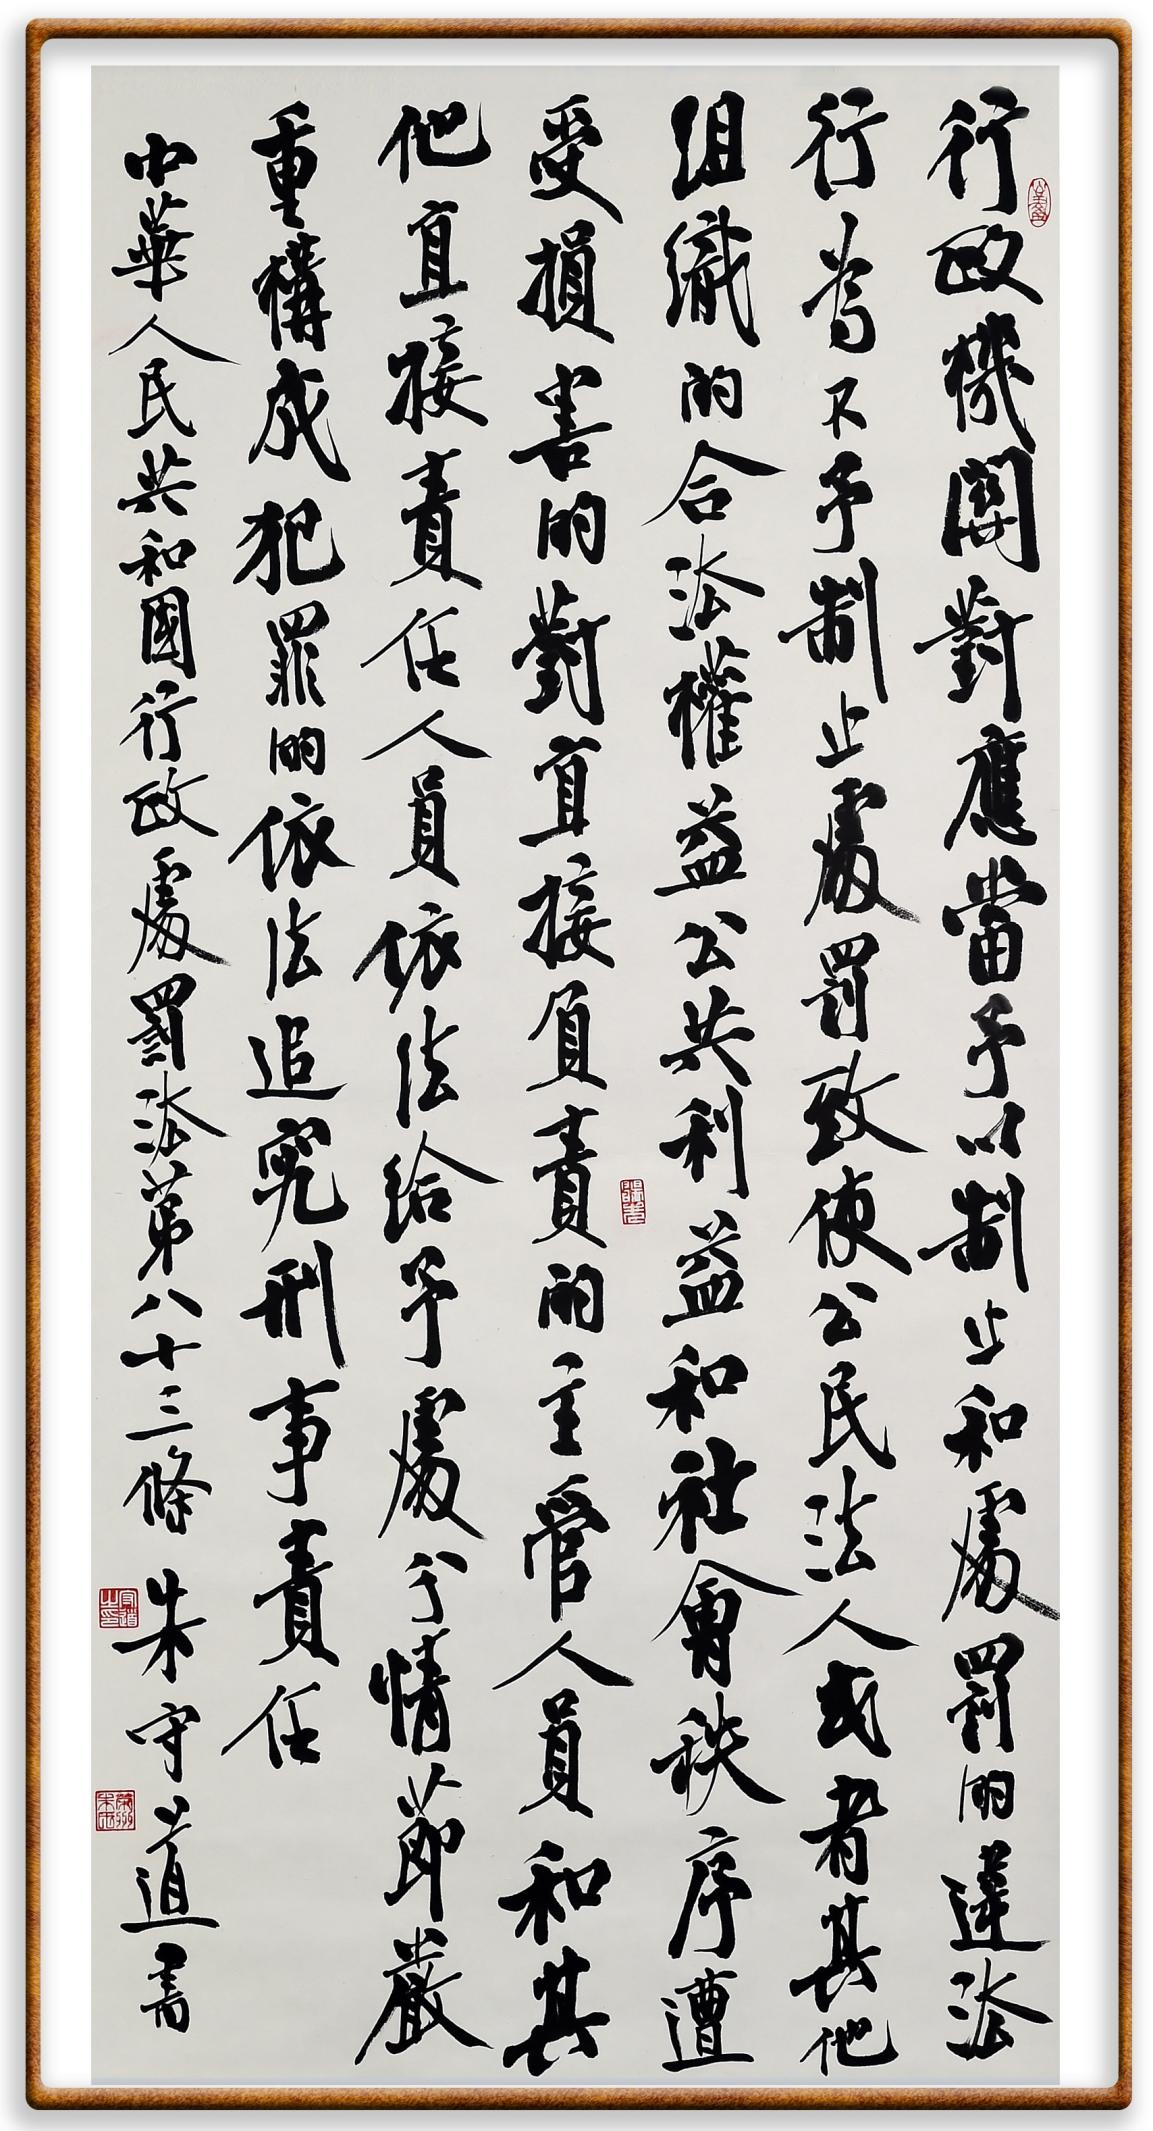 行政機關對應當予以制止和處罰的違法
行為不予制止處罰致使公民法人或者其他
組織的合法權益公共利益和社會秩序遭
受損害的對直接負責的主管人員和其
他直接責任人員依法給予處分情節嚴
重構成犯罪的依法追究刑事責任
中華人民共和國行政處罰法第八十三條 朱守道書